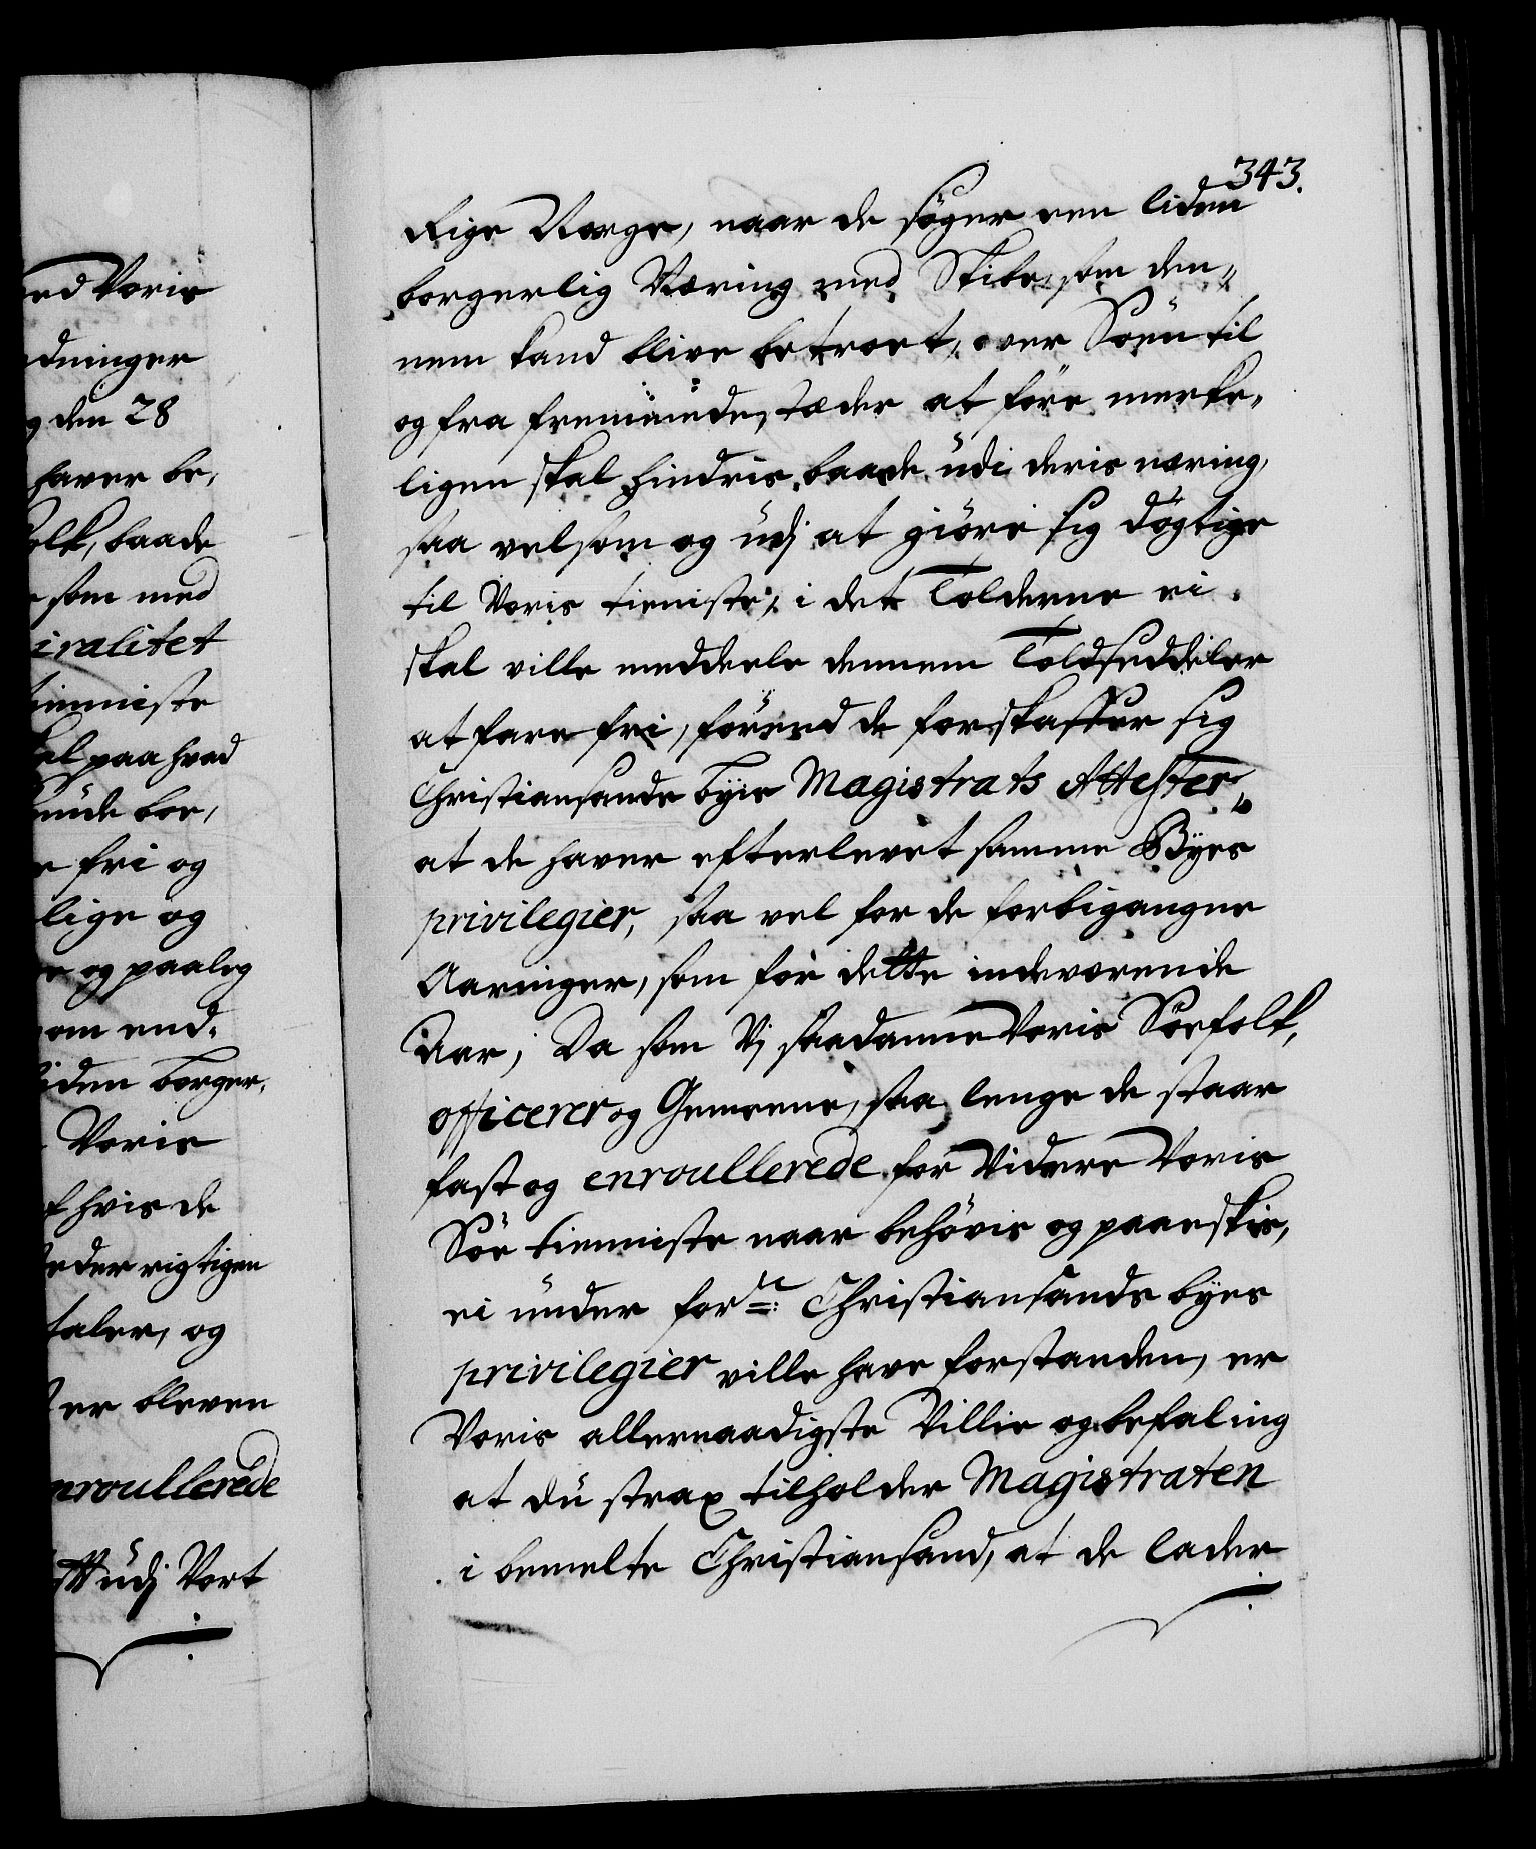 ed Voris
dninger
g den 28
haver be,
olk, baade
som med
iralitet
ienniste
al paa hvad
unde bor,
e fri og
lige og
e og paaleg
om end,
iden borger,
Voris
f hvis de
eder rigtigen
taler, og
er bleven
nroullerede
udj Vort
343.
Rige Norge, naar de söger een liden
borgerlig Næring med Skibe, som den,,
nem kand blive betroet, over Söen til
og fra fremmede stæder at före merke,,
ligen skal hindris, baade udi deris næring,
saa velsom og udj at giöre sig dögtige
til Voris tieniste, i det Tolderne ei
skal ville meddeele dennem Toldseddeler
at fare fri, förend de forskaffer sig
Christiansands byes Magistrats Attester,,
at de haver efterlevet samme Byes
privilegier, saa vel for de forbigangne
Aaringer, som for dette indeværende
Aar; Da som Vj saadanne Voris Söefolk,
officerer og Gemeene, saa lenge de staar
fast og enroullerede for Videre Voris
Söe tienniste naar behövis og paaeskis,
ei under forne: Christiansands byes
privilegier ville have forstanden, er
Voris allernaadigste Villie og befaling
at du strax tilholder Magistraten
i bemelte Christiansand, at de lader